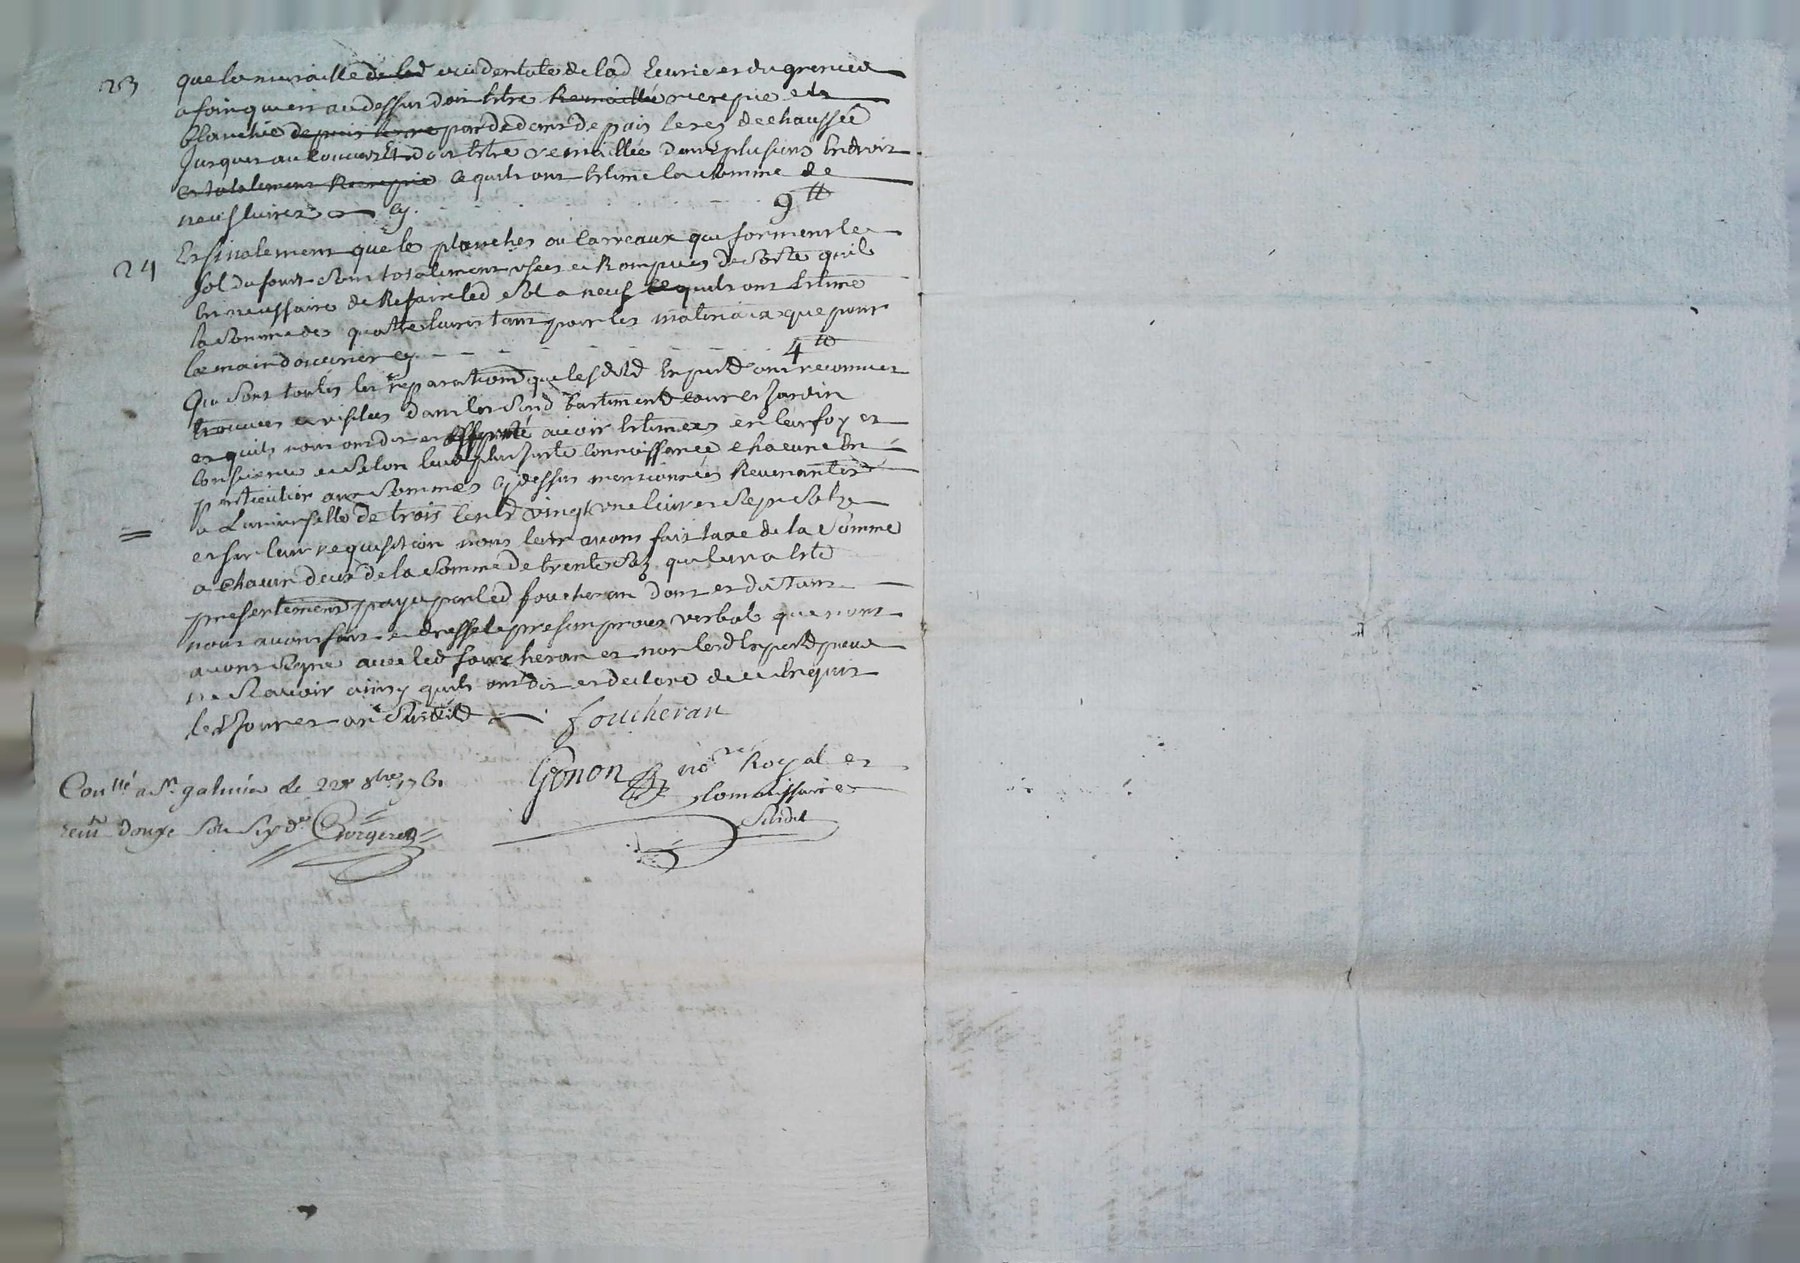 23 que la muraille de lad occidentale de lad Ecurie et du grenier
a foin qui est au dessus doit Estre Remaillée recrepie et
blanchie depuis terre par dedans depuis le rez de chaussée
Jusques au couvert Et doit Estre remaillée dans plusieurs Endroit
et totalement Recrepie ce quils ont Estimé la somme de
neuf livres cy . . . . 9 tt
24 Et finalement que les planches ou carreaux qui forment le
sol du four sont totalement usées et Rompues de sorte quil
Est necessaire de Refaire led sol a neuf ce quils ont Estimé
la somme de quatre livres tant pour les materiaux que pour
la main douvrier cy . . . . 4 tt
Qui sont toutes les reparations que lesd Expertd ont reconnues
trouvées et visitées dans les susd bastimentd cour et Jardin
et quils nous ont dit et affirmé avoir Estimées en leur foy et
conscience et selon leur plus Juste connoissance chacune En
particulier aux sommes cy dessus mentionnées Revenantes
a Luniverselle de trois centd vingt une livres sept solz
et sur leur requisition nous leur avons fait taxe de la somme
a chacun deux de la somme de trente solz qui leur a Eté
presentement payé par led foucheran dont et du tout
nous avons fait et dressé le present proces verbal que nous
avons signé avec led foucheran et non lesd Expertd pour
ne scavoir ainsy quils ont dit et declaré de ce Enquis
lesd Jour et an susdit
foucheran
Gonon nore Royal et
commissaire
Susdit
Conllé a St galmier le 22e 8bre 176
reçu douze sols six d